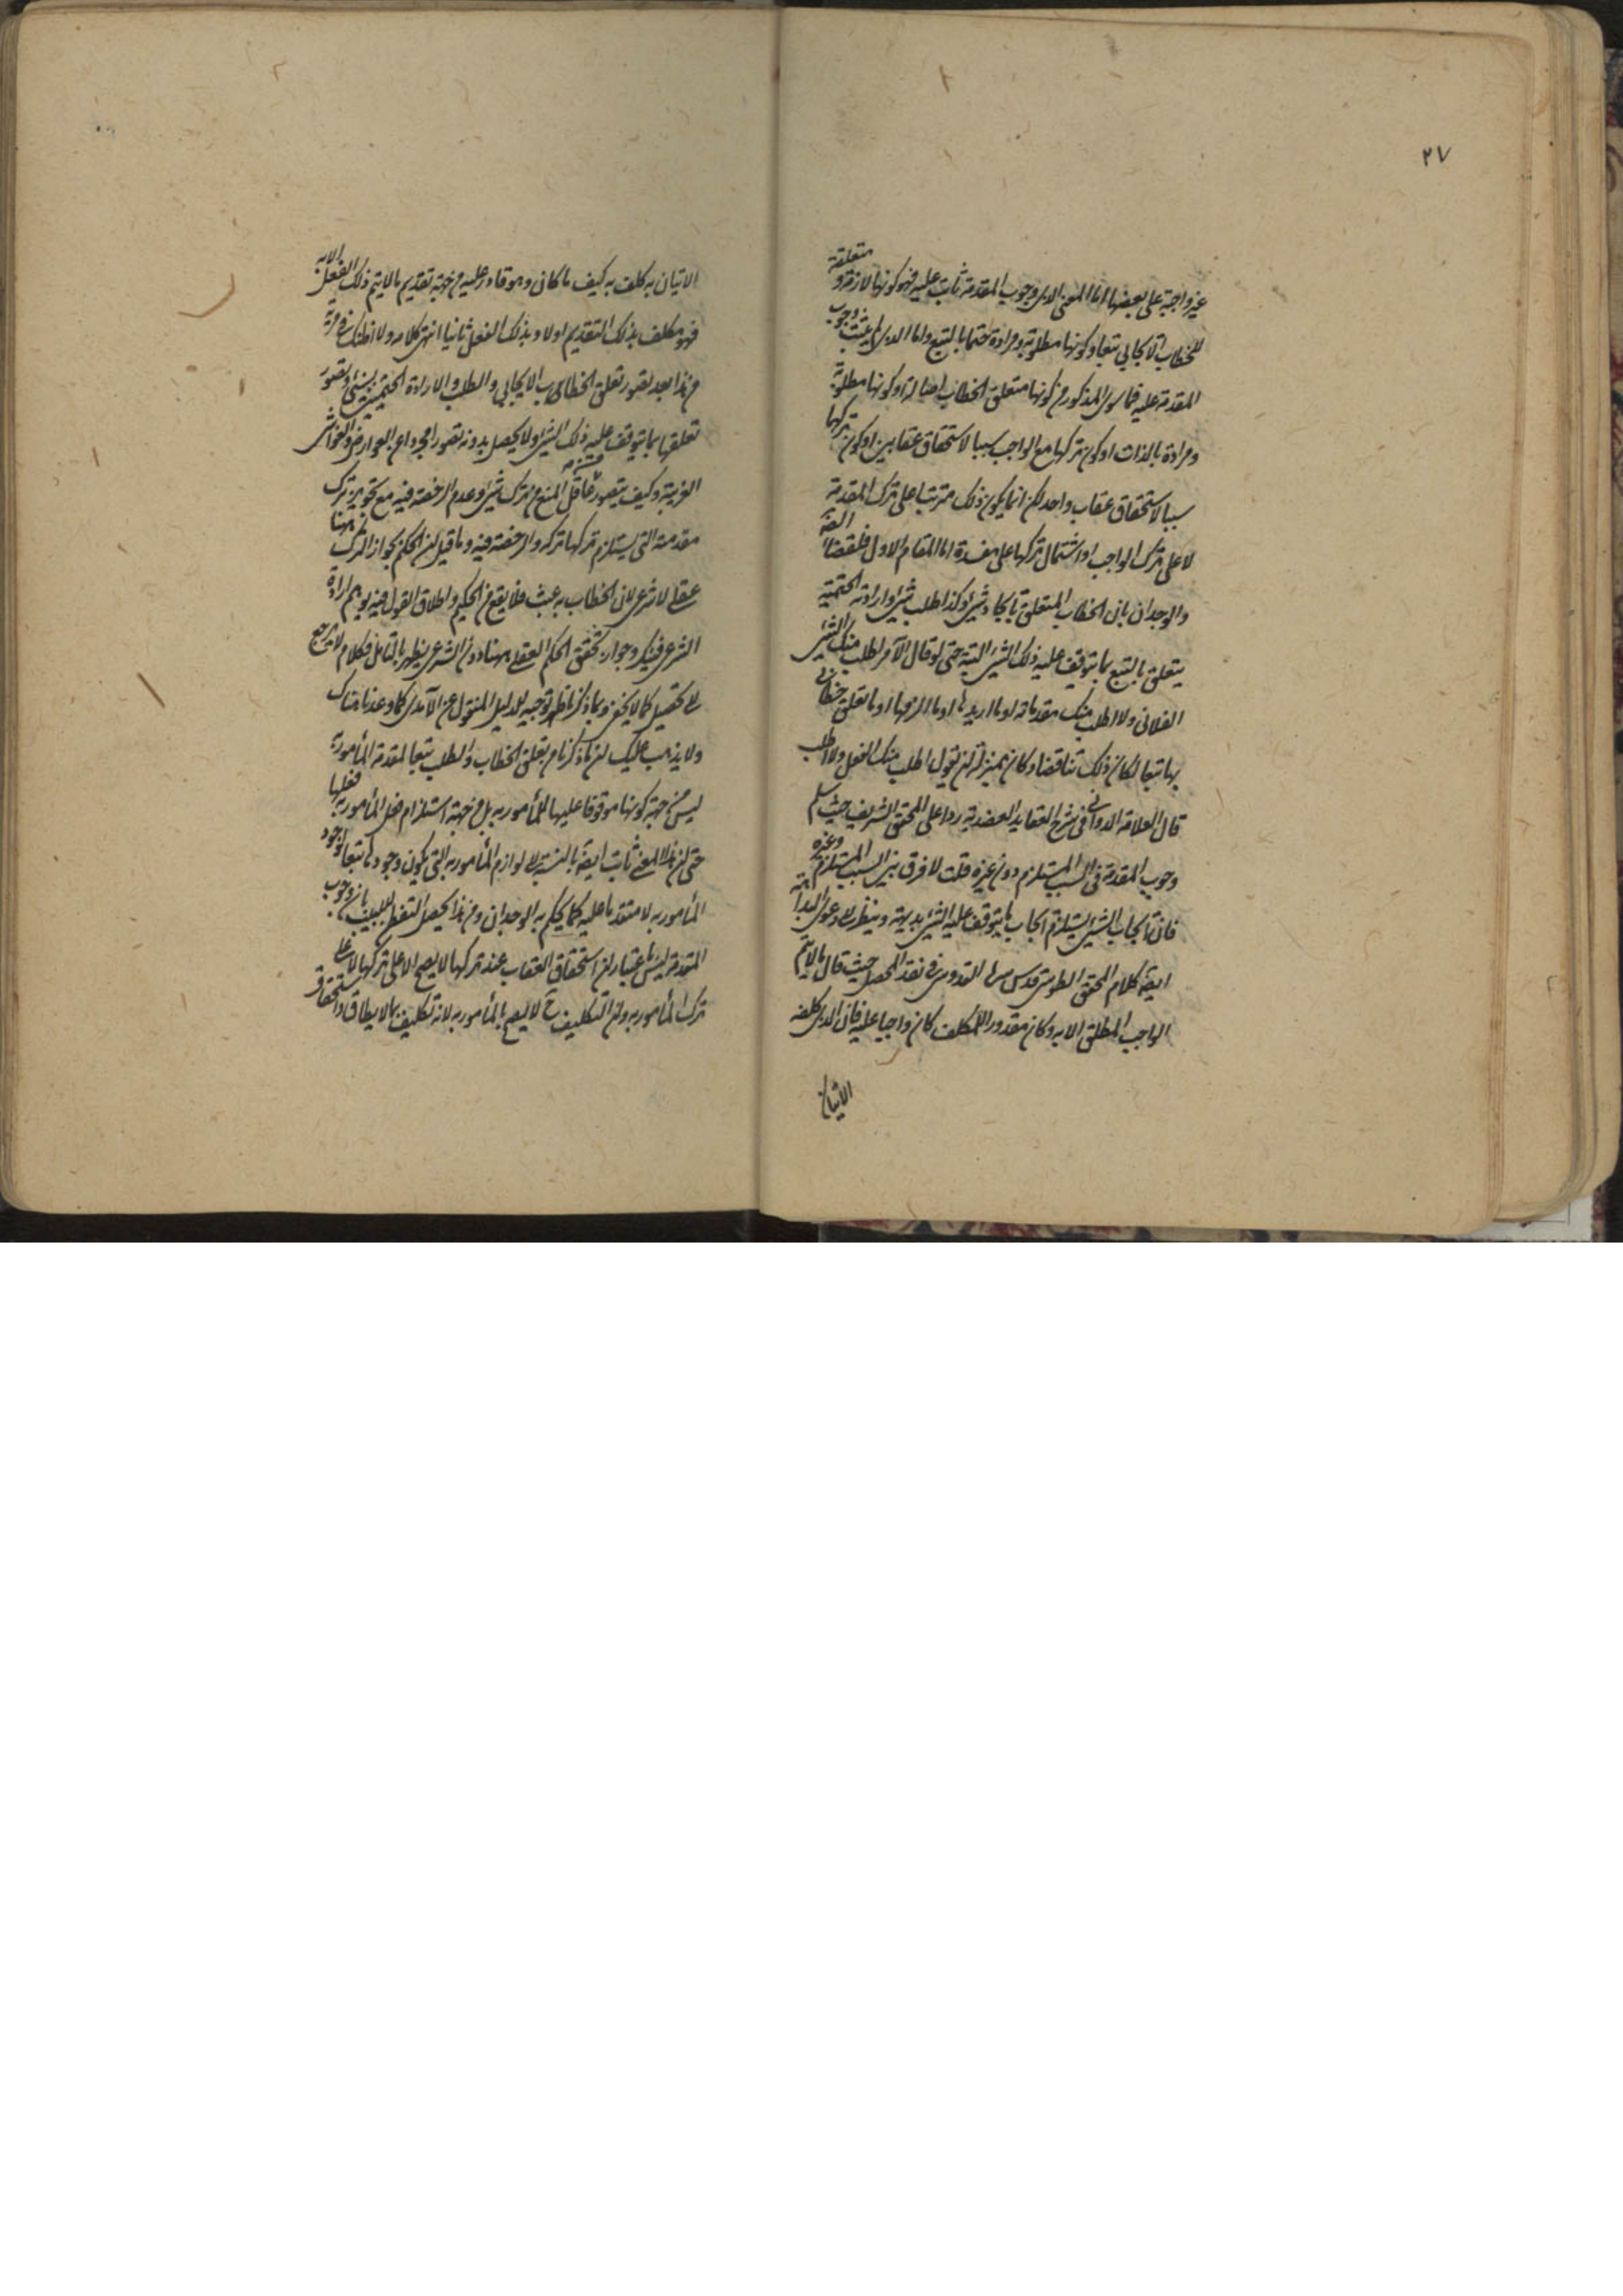 ٢٧
غير واجبة على بعضها اما المعنى الذى وجوب المقدمة ثابت عليه فهو كونها لازمة و متعلقة
للخطاب الايجابى تبعا و كونها مطلوبة و مرادة حتما بالتبع و اما الذى لم يثبت وجوب
المقدمة عليه فما سوى المذكور من كونها متعلق الخطاب اصالة او كونها مطلوبة
و مرادة بالذات او كون تركها مع الواجب سببا لاستحقاق عقابين او كون تركها
سببا لاستحقاق عقاب واحد لكن انما يكون ذلك مترتبا على ترك المقدمة
لا على ترك الواجب او اشتمال تركها على مفسدة اما المقام الاول فلقضاء
والوجدان بان الخطاب المتعلق بايجاد شىء وكذا طلب شىء وارادته الحتمية
يتعلق بالتبع بما يتوقف عليه ذلك الشىء البتة حتى لو قال الآمر اطلب منك الشىء
الفلانى ولا اطلب منك مقدماته او ما اريدها او ما الزمها او ما تعلق خطابى
بها تبعا لكان ذلك تناقضا و كان بمنزلة ان يقول اطلب منك الفعل ولا اطلب
قال العلامة الدوانى فى شرح العقايد العضدية ردا على المحقق الشريف حيث سلم
وجوب المقدمة فى السبب المستلزم دون غيره قلت لا فرق بين السبب المستلزم وغيره
فان ايجاب الشىء يستلزم ايجاب ما يتوقف عليه الشىء بديهة و ينظر الى دعوى البداهة
ايضا كلام المحقق الطوسى قدس سره القدوسى فى نقد المحصل حيث قال ما لا يتم
الواجب المطلق الا به و كان مقدورا للمكلف كان واجبا عليه فان الذى كلفه
الاتيان
الاتيان به كلف به كيف ما كان و هو قادر عليه من جهة تقديم ما لا يتم ذلك الفعل الا به
فهو مكلف بذلك التقديم اولا و بذلك الفعل ثانيا انتهى كلامه ولا اظنك فى مرية
من هذا بعد تصور تعلق الخطاب الايجابى والطلب والارادة الحتميين بشىء و تصور
تعلقها بما يتوقف عليه ذلك الشىء ولا يحصل بدونه تصورا مجردا عن العوارض والغواشى
الغريبة و كيف يتصور عاقل المنع من ترك شىء و عدم الرخصة فيه مع تجويز ترك
مقدمته التى يستلزم تركها تركه والرخصة فيه و ما قيل ان الحكم بجواز الترك هنا
عقلى لا شرعى لان الخطاب به عبث فلا يقع من الحكيم و اطلاق القول فيه يوهم ارادة
الشرعى فينكر و جواز تحقق الحكم العقلى ههنا دون الشرعى يظهر بالتامل فكلام لا يرجع
الى تحصيل كما لا يخفى و بما ذكرنا ظهر توجيه الدليل المنقول عن الآمدى كما وعدنا هناك
ولا يذهب عليك ان ما ذكرنا من تعلق الخطاب والطلب تبعا لمقدمة المأمور به
ليس من جهة كونها موقوفا عليها للمأمور به بل من جهة استلزام فعل المأمور به فعلها
حتى ان هذا المعنى ثابت ايضا بالنسبة الى لوازم المأمور به التى يكون وجودها تبعا لوجود
المأمور به لا متقدما عليه كما يحكم به الوجدان و من هذا يحصل التفطن للبيب بان وجوب
المقدمة ليس باعتبار ان استحقاق العقاب عند تركها لا يصح الا على تركها لا على
ترك المأمور به و ان التكليف ح لا يصح بالمأمور به لانه تكليف بما لا يطاق و استحقاق